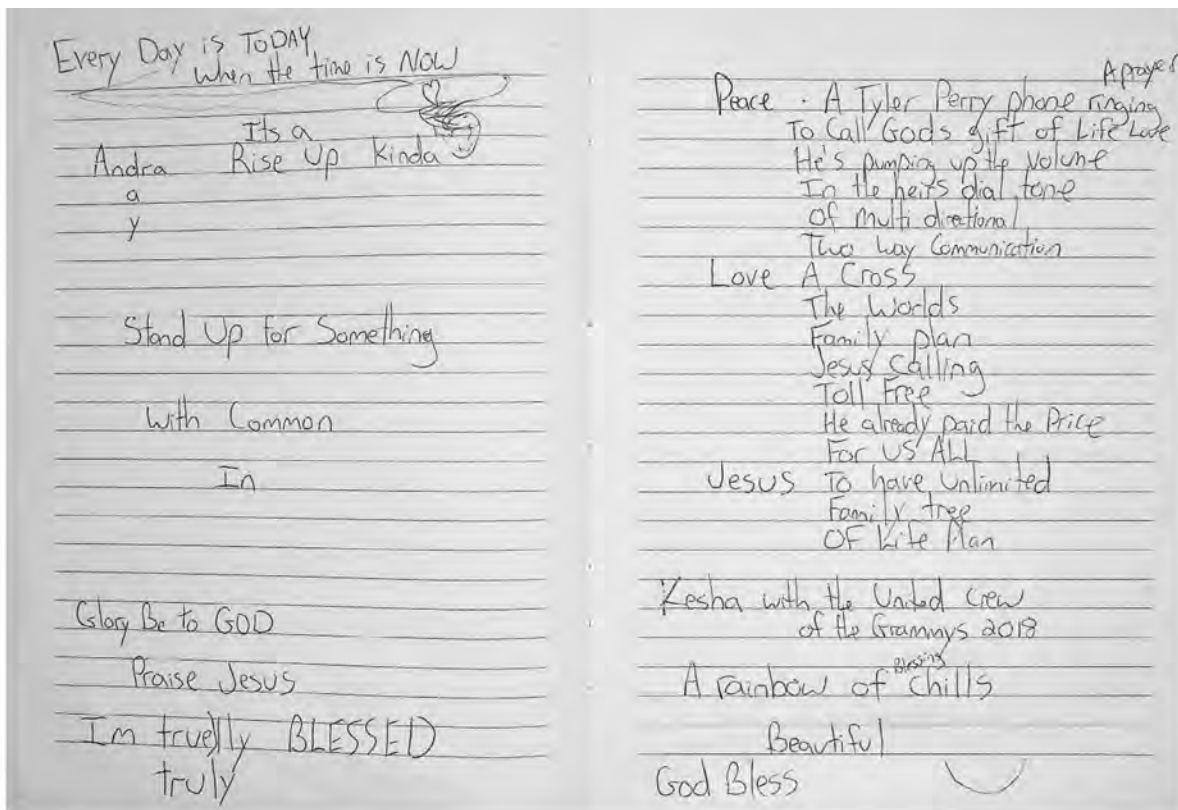 Every Day is TODAY
when the time is NOW
Its a
Andra Rise Up Kinda
a
y
Stand Up for Something
With Common
In
Glory Be to GOD
Praise Jesus
Im truelly BLESSED
truly
A prayer
Peace . A Tyler Perry phone ringing
To Call Gods gift of Life Love
He's pumping up the volume
In the heirs dial tone
Of multi directional
Two way Communication
Love A Cross
The Worlds
Family plan
Jesus Calling
Toll Free
He already paid the Price
For US ALL
Jesus To have Unlimited
Family tree
OF Life Plan
Kesha with the United Crew
of the Grammys 2018
Blessing
A rainbow of Chills
Beautiful
God Bless